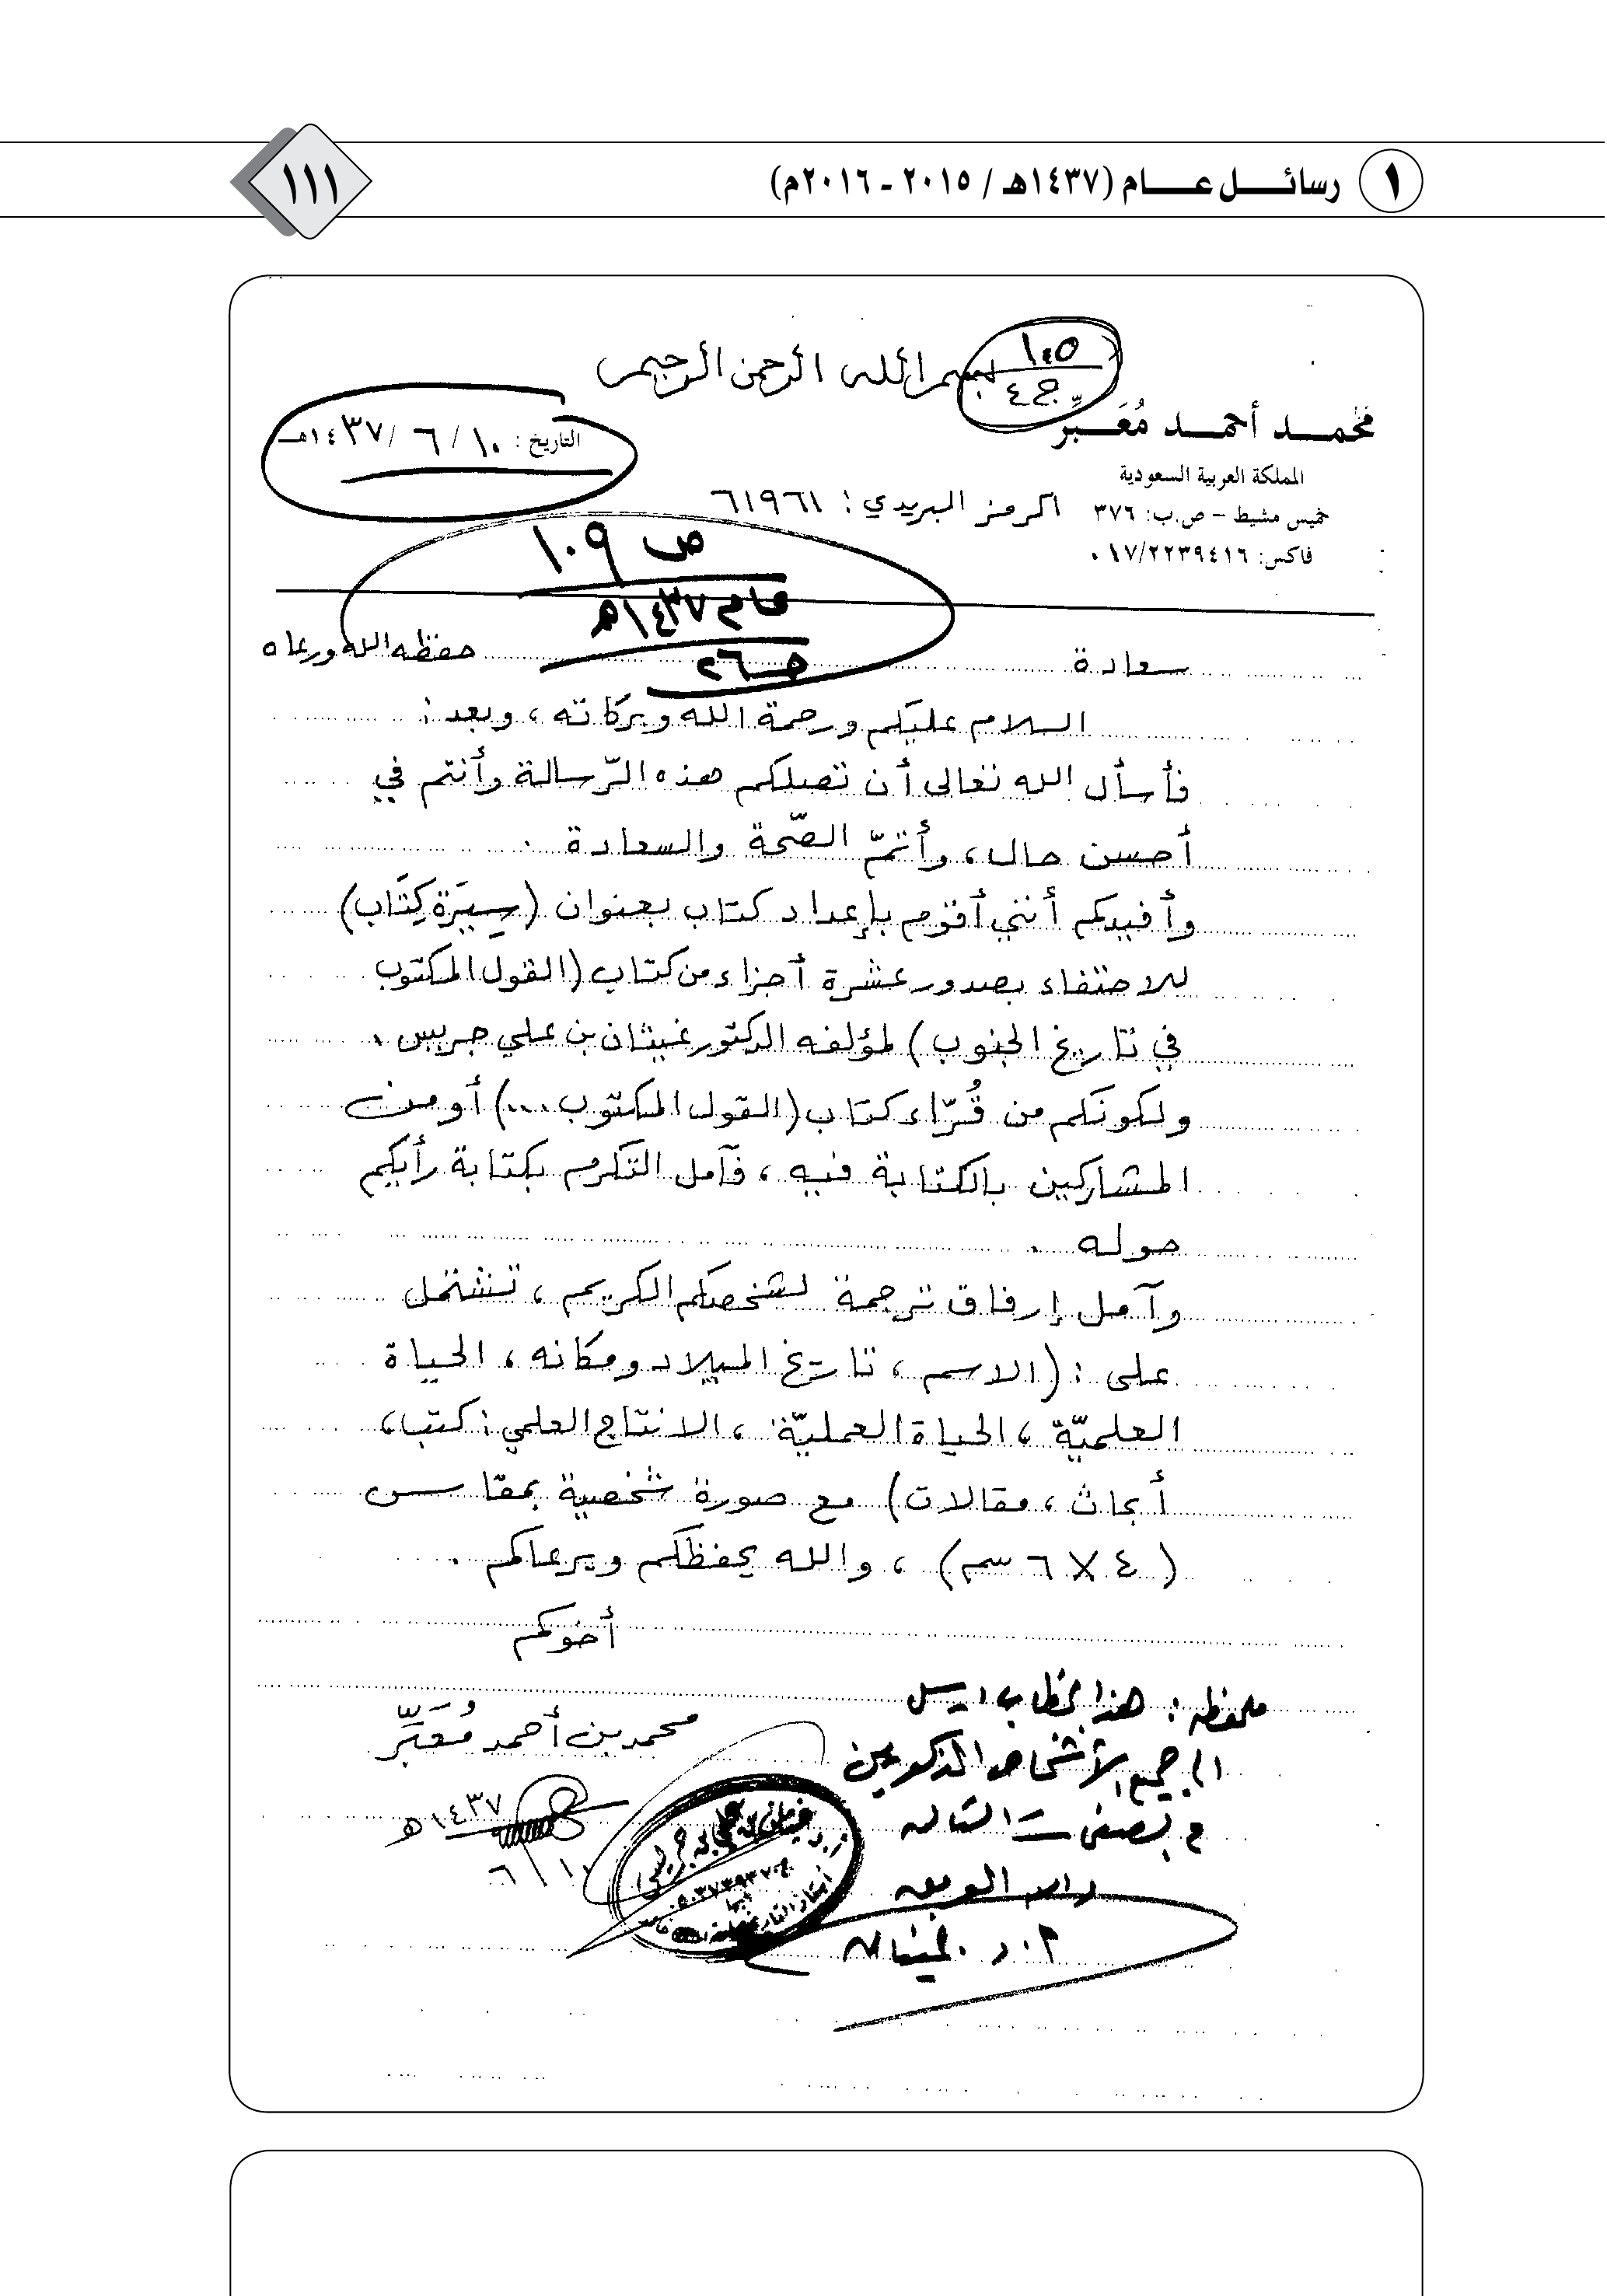 ١ رسائل عام (١٤٣٧هـ / ٢٠١٥ - ٢٠١٦م)
١١١
بسم الله الرحمن الرحيم
١٤٥
ج ٤
محمد أحمد مُعَبِّر
التاريخ: ١٠ / ٦ / ١٤٣٧هـ
المملكة العربية السعودية
خميس مشيط - ص.ب: ٣٧٦ الرمز البريدي: ٦١٩٦١
فاكس: ٠١٧/٢٢٣٩٤١٦
ص ١٠٩
عام ١٤٣٧هـ
جـ ٢٦
سعادة حفظه الله ورعاه
السلام عليكم ورحمة الله وبركاته، وبعد:
فأسأل الله تعالى أن تصلكم هذه الرّسالة وأنتم في
أحسن حال، وأتمّ الصّحة والسعادة.
وأفيدكم أنني أقوم بإعداد كتاب بعنوان (سِيَرة كِتَاب)
للاحتفاء بصدور عشرة أجزاء من كتاب (القول المكتوب
في تاريخ الجنوب) لمؤلفه الدكتور غيثان بن علي جريس.
ولكونكم من قُرّاء كتاب (القول المكتوب...) أو من
المشاركين بالكتابة فيه، فآمل التكرم بكتابة رأيكم
حوله.
وآمل إرفاق ترجمة لشخصكم الكريم، تشتمل
على: (الاسم، تاريخ الميلاد ومكانه، الحياة
العلميّة، الحياة العمليّة، الانتاج العلمي: كتب،
أبحاث، مقالات) مع صورة شخصية بمقاس
(٤ × ٦ سم)، والله يحفظكم ويرعاكم.
أخوكم
محمد بن أحمد مُعَبِّر
١٤٣٧هـ
٦/١٠
ملحظه: هذا الخطاب ارسل
الى جميع الأشخاص المذكورين
في الصفحات التاليه
والله الموفق
أ.د. غيثان